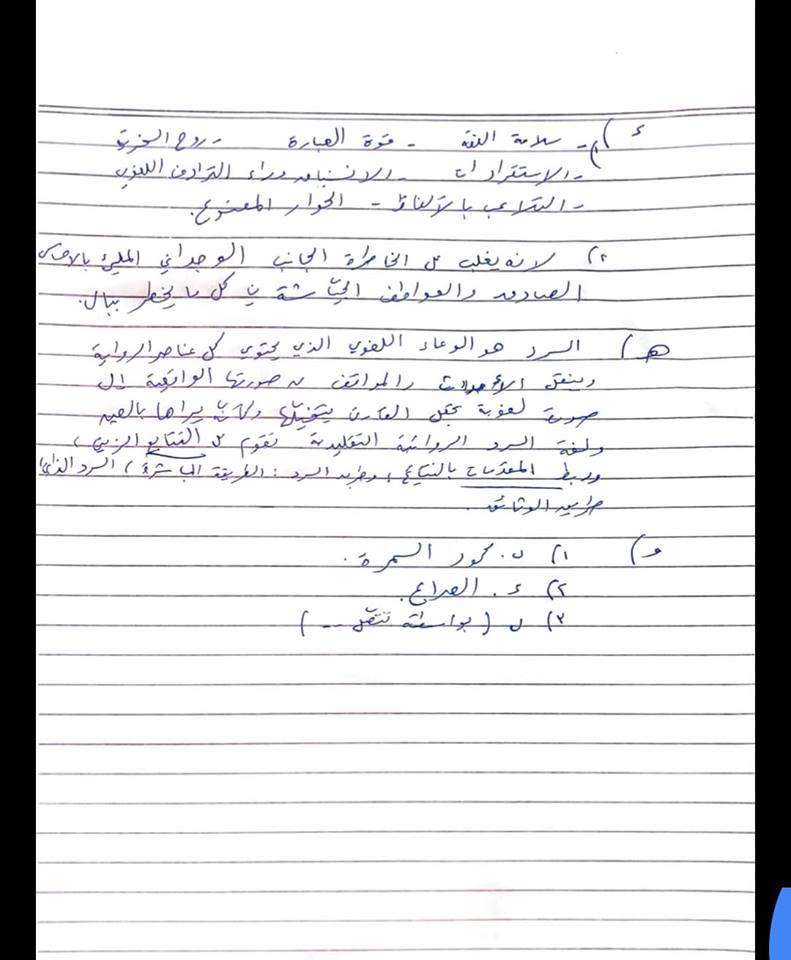 ء) ١) - سلامة اللغة - قوة العبارة - روح السخرية
- الاستطرادات - الانسياق وراء الترادف اللغوي
- التلاعب بالألفاظ - الحوار المصنوع.
٢) لانه يغلب على الخاطرة الجانب الوجداني المليئ بالاحساس
الصادق والعواطف الجياشة في كل ما يخطر ببال.
هـ) السرد هو الوعاء اللغوي الذي يحتوي كل عناصر الرواية
وينقل الأحداث والمواقف من صورتها الواقعية الى
صورة لغوية تجعل القارئ يتخيلها وكأنه يراها بالعين
ولغة السرد الروائية التقليدية تقوم على التتابع الزمني،
وربط المقدمات بالنتائج، وطرق السرد: الطريقة المباشرة، السرد الذاتي
طريقة الوثائق.
و) ١) ب. محمود السمرة.
٢) ء. الصراع.
٣) ب (بواسطة تنقل ...)